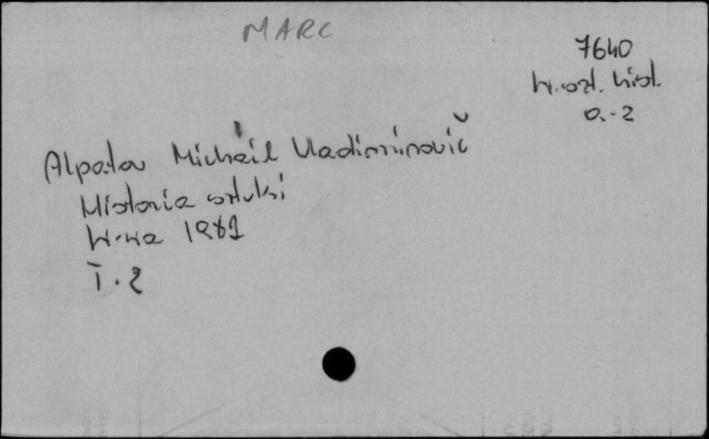 MARC
7640
H. szt. hist.
0.-2
Alpatov Michail Vladimirovič
Historia sztuki
W-wa 1981
T. 2